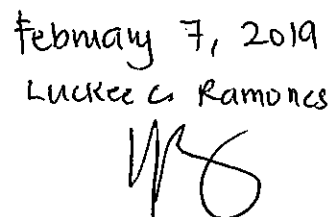 February 7, 2019
Luckee C. Ramones